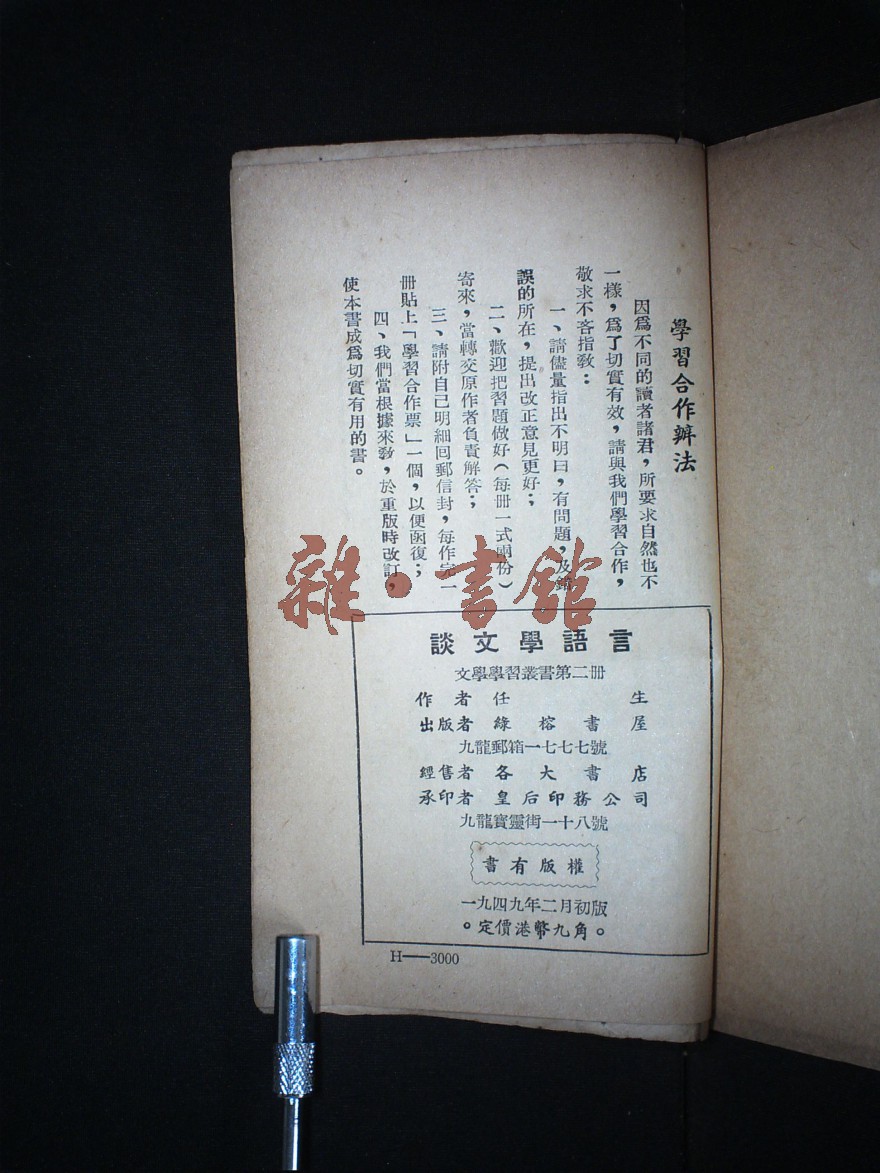 學習合作辦法
因爲不同的讀者諸君，所要求自然也不
一樣，爲了切實有效，請與我們學習合作，
敬求不吝指敎：
一、請儘量指出不明白，有問題，及錯
誤的所在，提出改正意見更好；
二、歡迎把習題做好（每冊一式兩份）
寄來，當轉交原作者負責解答；
三、請附自己明細回郵信封，每作完一
冊貼上「學習合作票」一個，以便函復；
四、我們當根據來敎，於重版時改訂，
使本書成爲切實有用的書。
雜·書館
談文學語言
文學學習叢書第二冊
作者任生
出版者綠榕書屋
九龍郵箱一七七七號
經售者各大書店
承印者皇后印務公司
九龍寶靈街一十八號
書有版權
一九四九年二月初版
。定價港幣九角。
H——3000